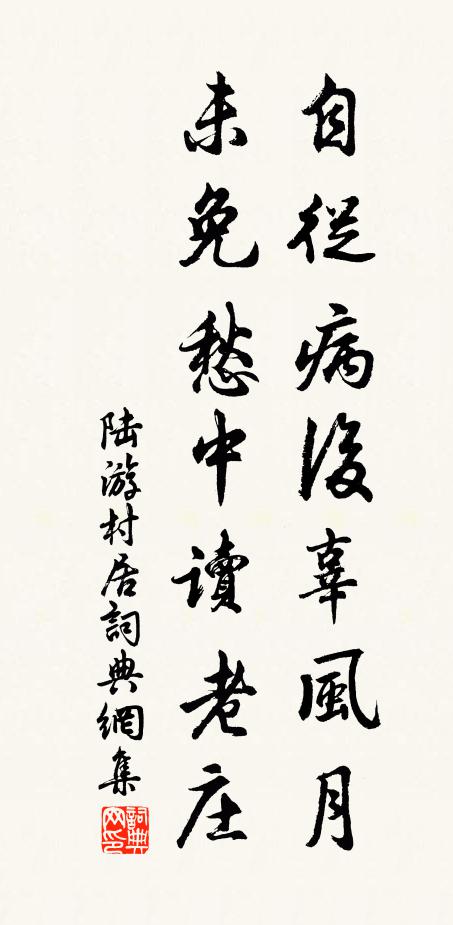 自從病後辜風月
未免愁中讀老庄
陆游村居詞典網集
詞典网印